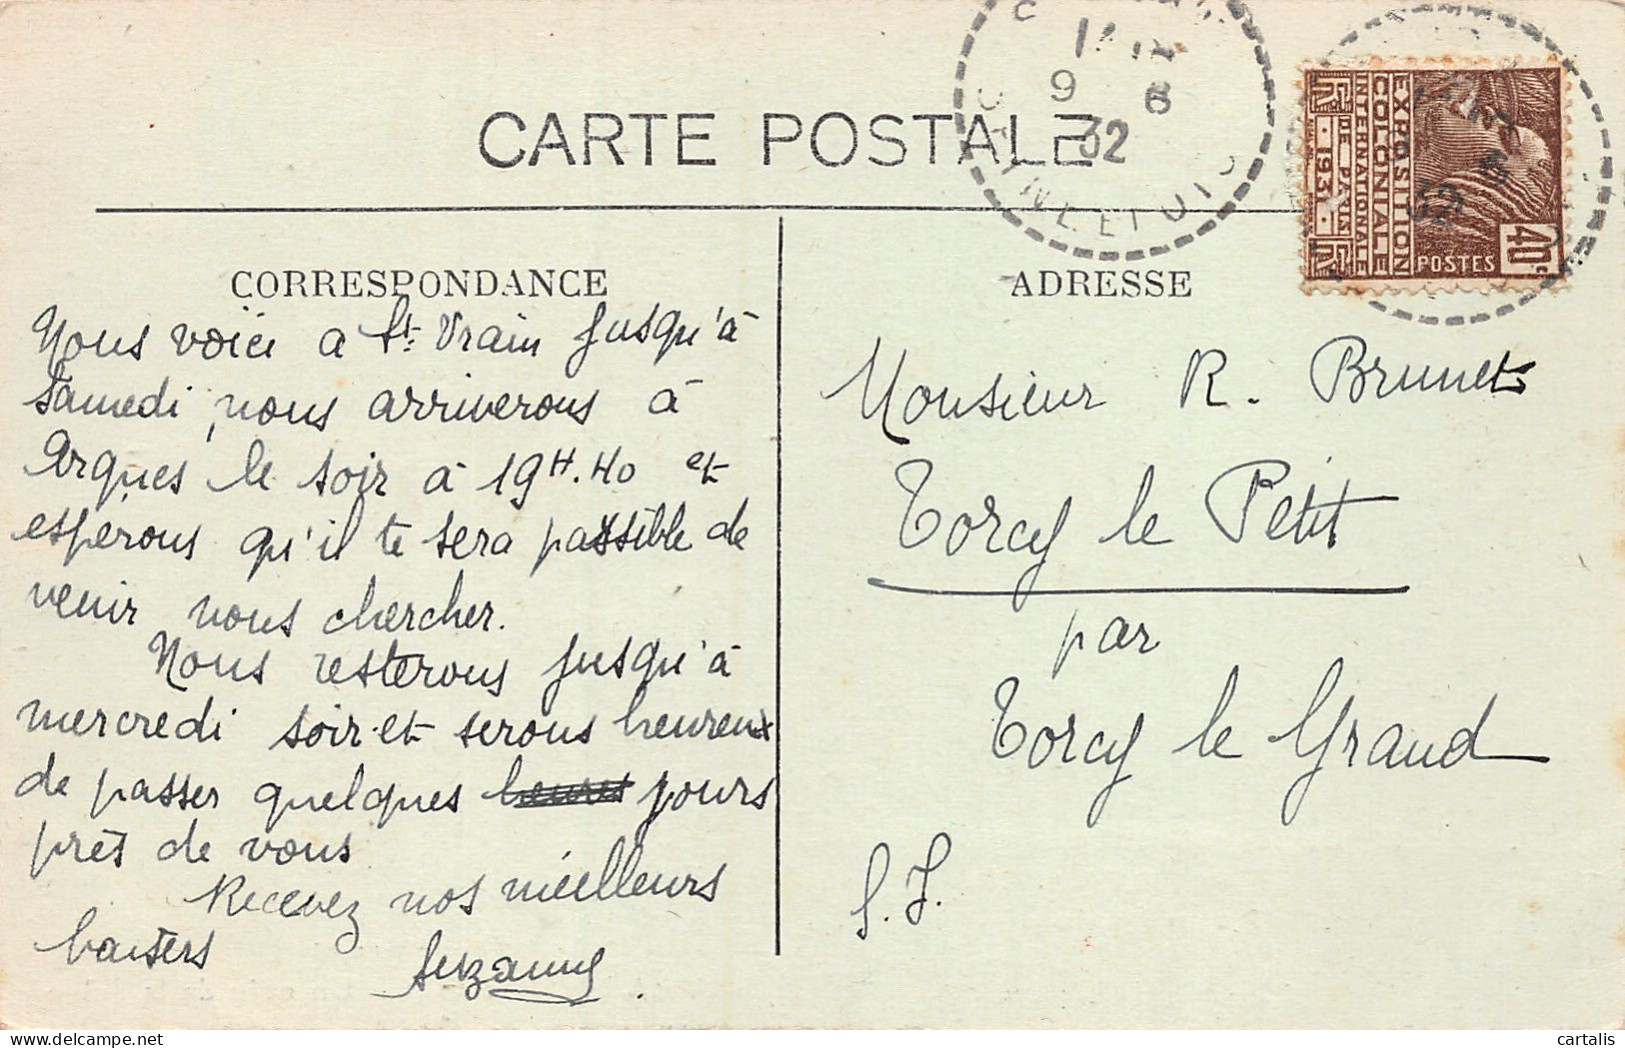 CARTE POSTALE
9 6
32
EXPOSITION
COLONIALE
INTERNATIONALE
DE PARIS
1931
POSTES
40c
CORRESPONDANCE
Nous voici a St Vrain jusqu'à
Samedi, nous arriverons à
Arques le soir à 19H.40 et
espérons qu'il te sera possible de
venir nous chercher.
Nous resterons jusqu'à
mercredi soir et serons heureux
de passer quelques heures jours
près de vous
Recevez nos meilleurs
baisers
Suzanne
ADRESSE
Monsieur R. Brunet
Torcy le Petit
par
Torcy le Grand
S. I.
cartalis